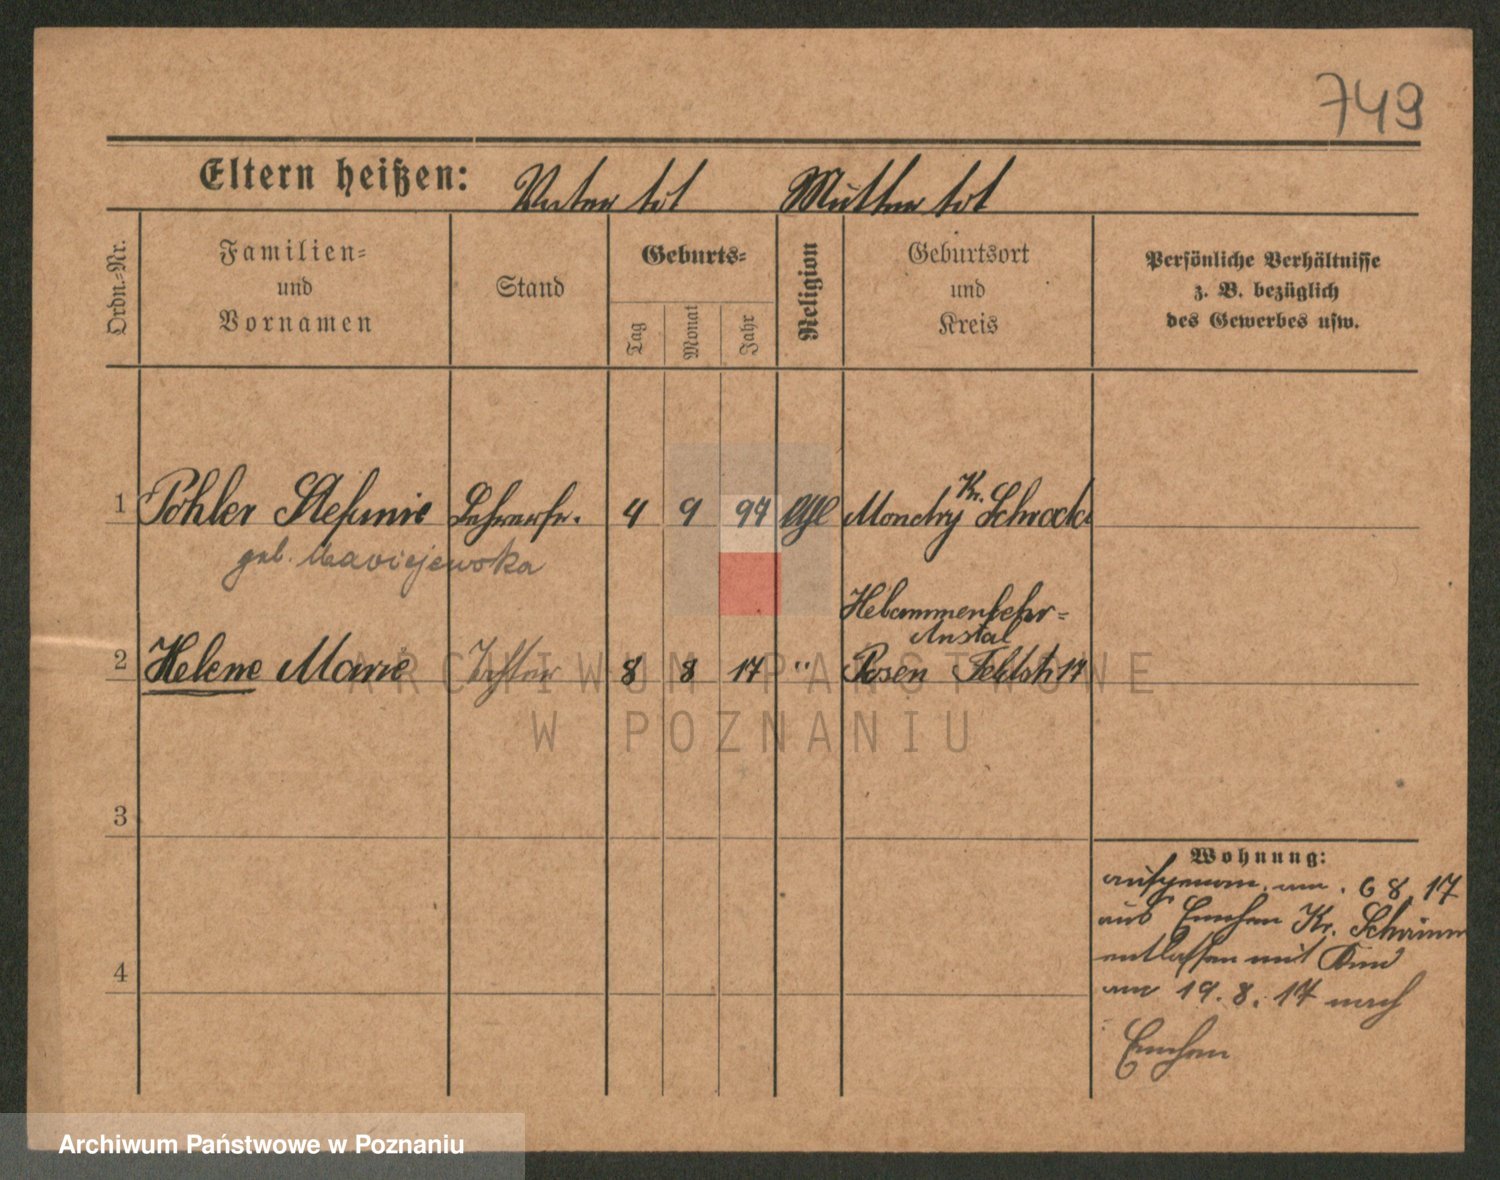 749
Eltern heißen: Vater tot Mutter tot
Ordn.-Nr.
Familien-
und
Vornamen
Stand
Geburts-
Tag
Monat
Jahr
Religion
Geburtsort
und
Kreis
Persönliche Verhältnisse
z. B. bezüglich
des Gewerbes usw.
1 Pohler Stefanie Lehrerfr. 4 9 94 Mondry Kr. Schrock
geb. Maciejewska
Hebammenlehr-
Anstal
2 Helene Marie Tochter 8 8 17 " Posen Feldstr 17
3
4
Wohnung:
aufgenom. am . 6 8. 17
aus Emchen Kr. Schrimm
entlassen mit Kind
am 19. 8. 17 nach
Emchen
ARCHIWUM PAŃSTWOWE
W POZNANIU
Archiwum Państwowe w Poznaniu